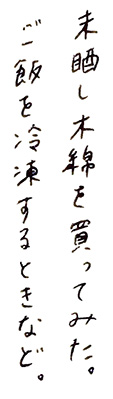 未晒し木綿を買ってみた。
ご飯を冷凍するときなど。